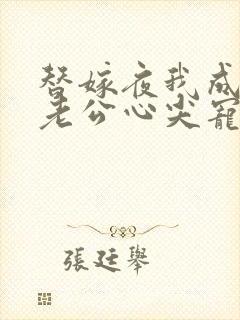 替嫁夜我成
老公心尖寵
張廷舉